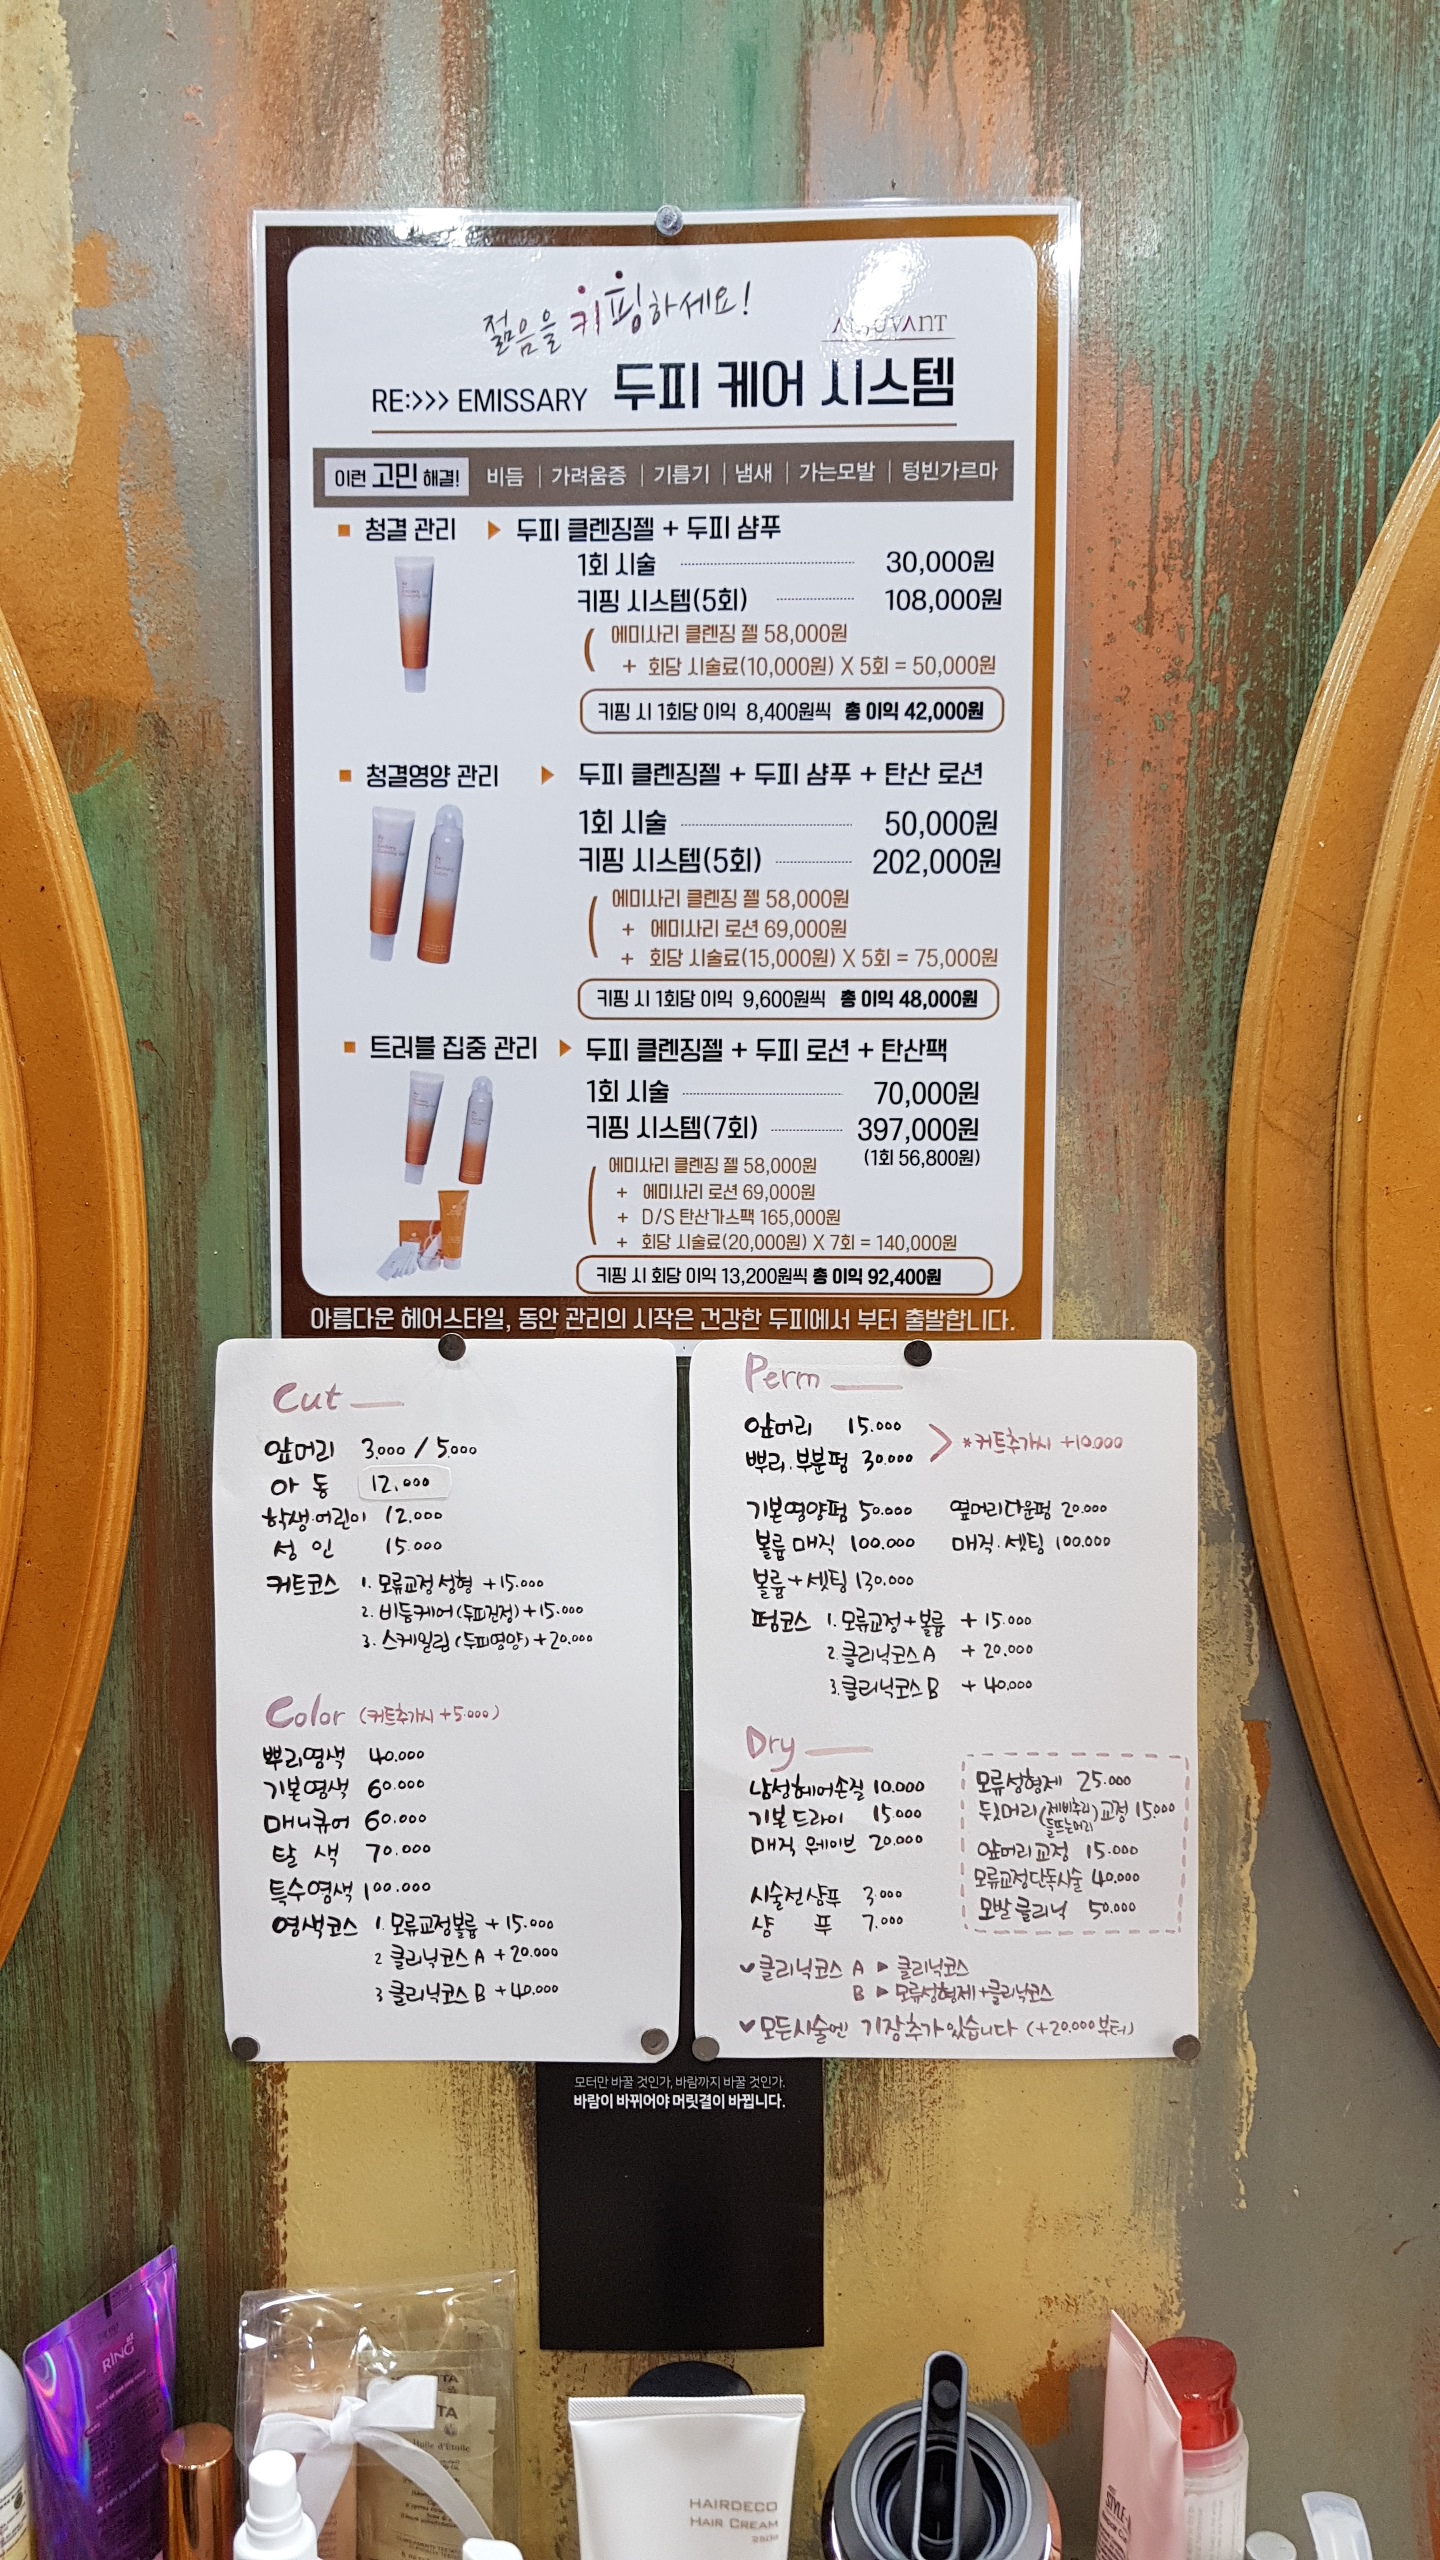 젊음을 키핑하세요!
RE:>>> EMISSARY 두피 케어 시스템
이런 고민 해결! 비듬 | 가려움증 | 기름기 | 냄새 | 가는모발 | 텅빈가르마
■ 청결 관리 ▶ 두피 클렌징젤 + 두피 샴푸
1회 시술 30,000원
키핑 시스템(5회) 108,000원
에미사리 클렌징 젤 58,000원
+ 회당 시술료(10,000원) X 5회 = 50,000원
키핑 시 1회당 이익 8,400원씩 총 이익 42,000원
■ 청결영양 관리 ▶ 두피 클렌징젤 + 두피 샴푸 + 탄산 로션
1회 시술 50,000원
키핑 시스템(5회) 202,000원
에미사리 클렌징 젤 58,000원
+ 에미사리 로션 69,000원
+ 회당 시술료(15,000원) X 5회 = 75,000원
키핑 시 1회당 이익 9,600원씩 총 이익 48,000원
■ 트러블 집중 관리 ▶ 두피 클렌징젤 + 두피 로션 + 탄산팩
1회 시술 70,000원
키핑 시스템(7회) 397,000원
(1회 56,800원)
에미사리 클렌징 젤 58,000원
+ 에미사리 로션 69,000원
+ D/S 탄산가스팩 165,000원
+ 회당 시술료(20,000원) X 7회 = 140,000원
키핑 시 회당 이익 13,200원씩 총 이익 92,400원
아름다운 헤어스타일, 동안 관리의 시작은 건강한 두피에서 부터 출발합니다.
Cut
앞머리 3.000 / 5.000
아동 12.000
학생·어린이 12.000
성인 15.000
커트코스 1. 모류교정성형 +15.000
2. 비듬케어(두피진정)+15.000
3. 스케일링(두피영양)+20.000
Color (커트추가시 +5.000)
뿌리염색 40.000
기본염색 60.000
매니큐어 60.000
탈색 70.000
특수염색 100.000
염색코스 1. 모류교정볼륨 +15.000
2 클리닉코스 A +20.000
3 클리닉코스 B +40.000
Perm
앞머리 15.000
뿌리.부분펌 30.000
*커트추가시 +10.000
기본영양펌 50.000 옆머리다운펌 20.000
볼륨매직 100.000 매직.셋팅 100.000
볼륨+셋팅 130.000
펌코스 1. 모류교정+볼륨 +15.000
2. 클리닉코스 A +20.000
3. 클리닉코스 B +40.000
Dry
남성헤어손질 10.000
기본드라이 15.000
매직 웨이브 20.000
시술전샴푸 3.000
샴푸 7.000
모류성형제 25.000
뒷머리(제비추리 들뜨는머리)교정 15.000
앞머리교정 15.000
모류교정단독시술 40.000
모발클리닉 50.000
✓클리닉코스 A ▶ 클리닉코스
B ▶ 모류성형제+클리닉코스
✓모든시술엔 기장추가있습니다 (+20.000부터)
모터만 바꿀 것인가, 바람까지 바꿀 것인가.
바람이 바뀌어야 머릿결이 바뀝니다.
RING
Huile d'Étoile
HAIRDECO
HAIR CREAM